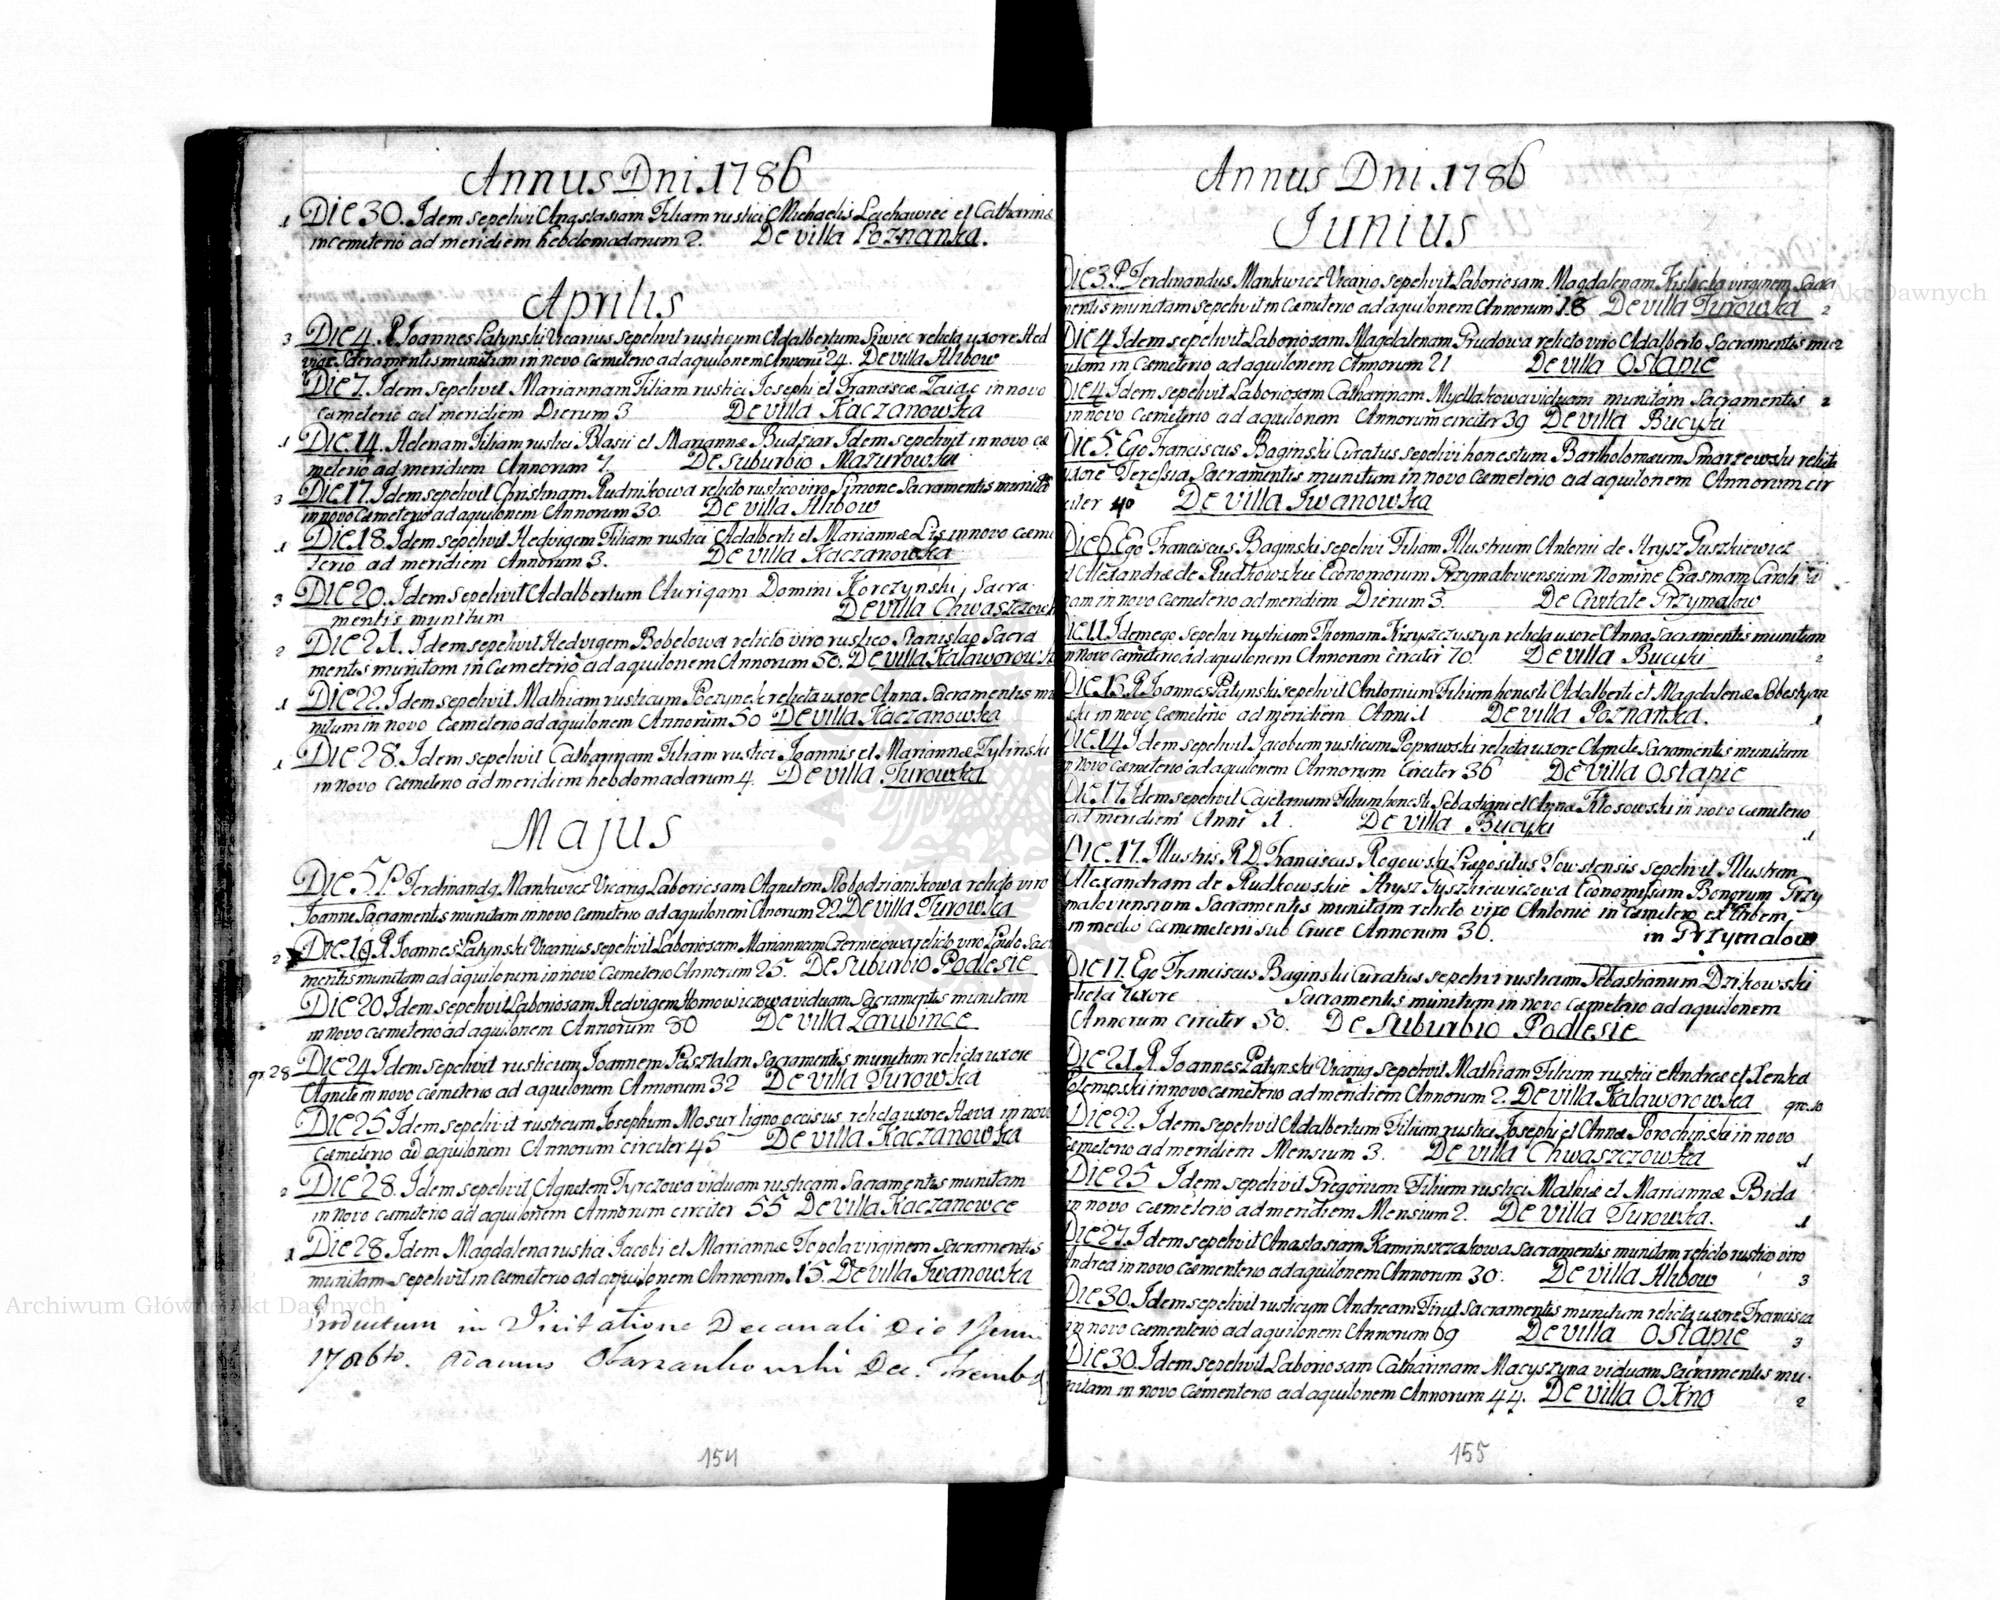 Annus Dni. 1786
1 Die 30. Idem sepelivi Anastasiam Filiam rustici Michaelis Lachawiec et Catharinæ
in cemiterio ad meridiem hebdomadarum 2. De villa Poznanka.
Aprilis
3 Die 4. R Joannes Patynski Vicarius sepelivit rusticum Adalbertum Kwiec relicta uxore Hed
vige Sacramentis munitum in novo Cæmeterio ad aquilonem Annorū 24. De villa Hlibow
Die 7. Idem sepelivit Mariannam Filiam rustici Josephi et Franciscæ Zaiac in novo
cæmeterio ad meridiem Dierum 3 De villa Kaczanowka
1 Die 14. Helenam Filiam rustici Blasii et Mariannæ Budziar Idem sepelivit in novo cæ
meterio ad meridiem Annorum 7. De Suburbio Mazurowki
3 Die 17. Idem sepelivit Christinam Rudnikowa relicto rustico viro Simone Sacramentis munitā
in novo Cæmeterio ad aquilonem Annorum 30. De villa Hlibow
1 Die 18. Idem sepelivit Hedvigem Filiam rustici Adalberti et Mariannæ Lis in novo cæme
terio ad meridiem Annorum 3. De villa Kaczanowka
3 Die 20. Idem sepelivit Adalbertum Aurigam Domini Korczynski, Sacra
mentis munitum De villa Chwaszczowk
2 Die 21. Idem sepelivit Hedvigem Bobelowa relicto viro rustico Stanislao Sacra
mentis munitam in Cæmeterio ad aquilonem Annorum 50. De villa Kalaworowk
1 Die 22. Idem sepelivit Mathiam rusticum Poczynek relicta uxore Anna Sacramentis mu
nitum in novo Cæmeterio ad aquilonem Annorum 50 De villa Kaczanowka
1 Die 28. Idem sepelivit Catharinam Filiam rustici Joannis et Mariannæ Tylinski
in novo Cæmeterio ad meridiem hebdomadarum 4. De villa Turowka
Majus
Die 5 P. Ferdinandg Mankwicz Vicarig Laboriosam Agnetem Slobodzianikowa relicto viro
Joanne Sacramentis munitam in novo cæmeterio ad aquilonem Anorum 22. De villa Turowka
2 Die 19 R Joannes Patynski Vicarius sepelivit Laboriosam Mariannam Czerniejowa relicto viro Paulo Sacr
mentis munitam ad aquilonem in novo Cæmeterio Annorum 25. De Suburbio Podlesie
Die 20 Idem sepelivit Laboriosam Hedvigem Homowiczowa viduam Sacramentis munitam
in novo cæmeterio ad aquilonem Annorum 80 De villa Zarubince
gr. 28 Die 24 Idem sepelivit rusticum Joannem Pasztalan Sacramentis munitum relicta uxore
Agnete in novo cæmeterio ad aquilonem Annorum 32 De villa Turowka
Die 25 Idem sepelivit rusticum Josephum Mosur ligno occisus relicta uxore Hæva in novo
cæmeterio ad aquilonem Annorum circiter 45 De villa Kaczanowka
2 Die 28. Idem sepelivit Agnetem Tyrczowa viduam rusticam Sacramentis munitam
in novo cæmiterio ad aquilonem Annorum circiter 55 De villa Kaczanowce
1 Die 28. Idem Magdalena rustici Jacobi et Mariannæ Topola virginem Sacramentis
munitam sepelivit in Cæmeterio ad aquilonem Annorum 15. De villa Iwanowka
Productum in Visitatione Decanali Die 1 Junii
1786to. Adamus Obarzankowski Dec. Trembo
154
Annus Dni. 1786
Junius
Die 3. P. Ferdinandus Mankwicz Vicarig sepelivit Laboriosam Magdalenam Kislicka virginem Sacra
mentis munitam sepelivit in Cæmeterio ad aquilonem Annorum 18 De villa Turowka 2
Die 4 Idem sepelivit Laboriosam Magdalenam Prudowa relicto viro Adalberto Sacramentis mun 2
itam in Cæmeterio ad aquilonem Annorum 21 De villa Ostapie
Die 4 Idem sepelivit Laboriosam Catharinam Mydlakowa viduam munitam Sacramentis 2
in novo Cæmeterio ad aquilonem Annorum circiter 39 De villa Bucyki
Die 5. Ego Franciscus Baginski Curatus sepelivi honestum Bartholomæum Smarzewski relicta
uxore Teressia Sacramentis munitum in novo Cæmeterio ad aquilonem Annorum cir
citer 40 De villa Iwanowka
Die 6 Ego Franciscus Baginski sepelivi Filiam Illustrium Antonii de Hrysz Tyszkiewicz
et Alexandræ de Rudkowskie Economorum Grzymaloviensium Nomine Erasmam Caroli
nam in novo cæmeterio ad meridiem Dierum 3. De Civitate Grzymalow
Die 11. Idem ego sepelivi rusticum Thomam Krzyszczyszyn relicta uxore Anna Sacramentis munitum
in novo Cæmeterio ad aquilonem Annorum circiter 70. De villa Bucyki 2
Die 13. R Joannes Patynski sepelivit Antonium Filium honesti Adalberti et Magdalenæ Sobestyan
ski in novo Cæmeterio ad meridiem Anni 1 De villa Poznanka. 1
Die 14 Idem sepelivit Jacobum rusticum Poprawski relicta uxore Agnete Sacramentis munitum
in novo Cæmeterio ad aquilonem Annorum Circiter 36 De villa Ostapie
Die 17. Idem sepelivit Cajetanum Filium honesti Sebastiani et Annæ Klosowski in novo cæmeterio
ad meridiem Anni 1. De villa Bucyki 1
Die 17. Illustris R D. Franciscus Rogowski Præpositus Towstensis sepelivit Illustrem
Alexandram de Rudkowskie Hrysz Tyszkiewiczowa Economisam Bonorum Grzy
maloviensium Sacramentis munitam relicto viro Antonio in Cæmitero ex Urbem
in medio Cæmemeterii sub Cruce Annorum 36. in Grzymalow
Die 17. Ego Franciscus Baginski Curatus sepelivi rusticum Sebastianum Dzikowski
relicta Uxore Sacramentis munitum in novo Cæmeterio ad aquilonem
Annorum circiter 50. De Suburbio Podlesie
Die 21. R. Joannes Patynski Vicarig sepelivit Mathiam Filium rustici Andreæ et Xenka
Golempski in novo cæmeterio ad meridiem Annorum 2. De villa Kalaworowka gr. 10
Die 22. Idem sepelivit Adalbertum Filium rustici Josephi et Annæ Porochinski in novo
Cæmeterio ad meridiem Mensium 3. De villa Chwaszczowka 1
Die 25 Idem sepelivit Gregorium Filium rustici Mathiæ et Mariannæ Bida
in novo cæmeterio ad meridiem Mensium 2. De villa Turowka. 1
Die 27. Idem sepelivit Anastasiam Kaminszczakowa Sacramentis munitam relicto rustico viro
Andrea in novo cæmenterio ad aquilonem Annorum 30. De villa Hlibow 3
Die 30. Idem sepelivit rusticum Andream Firut Sacramentis munitum relicta uxore Francisca
in novo cæmenterio ad aquilonem Annorum 69 De villa Ostapie 3
Die 30. Idem sepelivit Laboriosam Catharinam Macyszyna viduam Sacramentis mu.
nitam in novo cæmenterio ad aquilonem Annorum 44. De villa Okno 2
155
Archiwum Główne Akt Dawnych